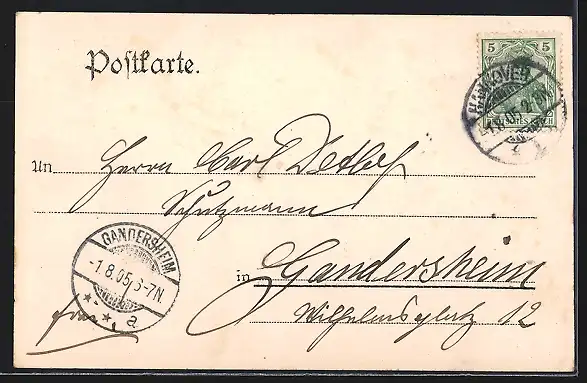 Postkarte.
5 5
DEUTSCHES REICH
HANNOVER
1.8.05.2-
An Herrn Carl Detlef
Schutzmann
in Gandersheim
Wilhelmsplatz 12
GANDERSHEIM
-1.8.05, 6-7N.
* * *
a